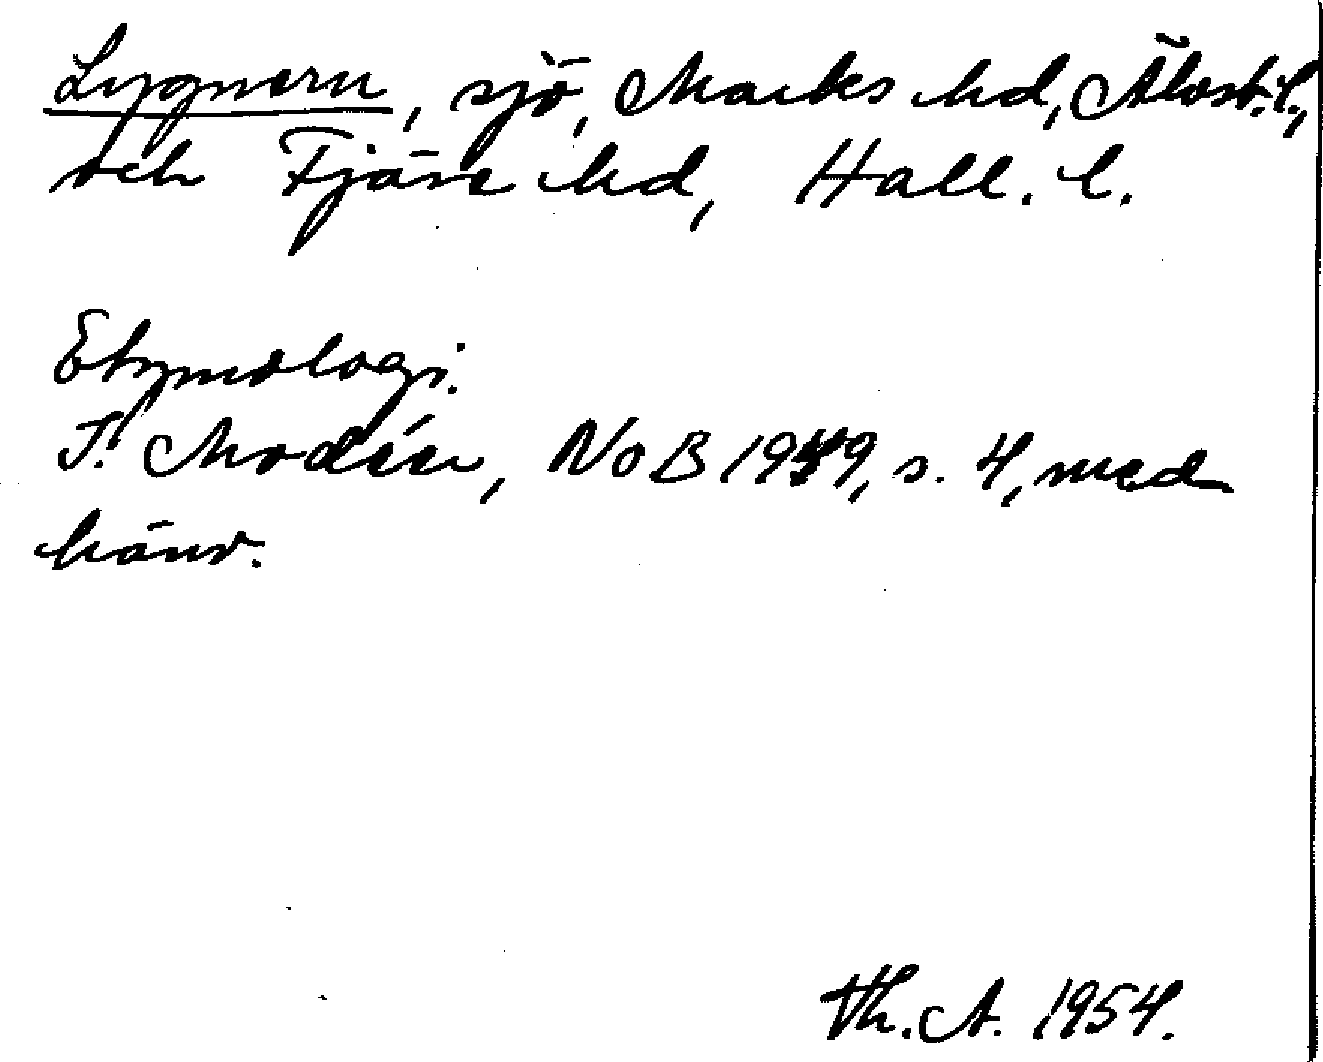 Lygnern, sjö, Marks hd, Älvsb. l.,
och Fjäre hd, Hall. l.
Etymologi.
I. Modéer, NoB 1949, s. 4, med
hänv.
Th. A. 1954.